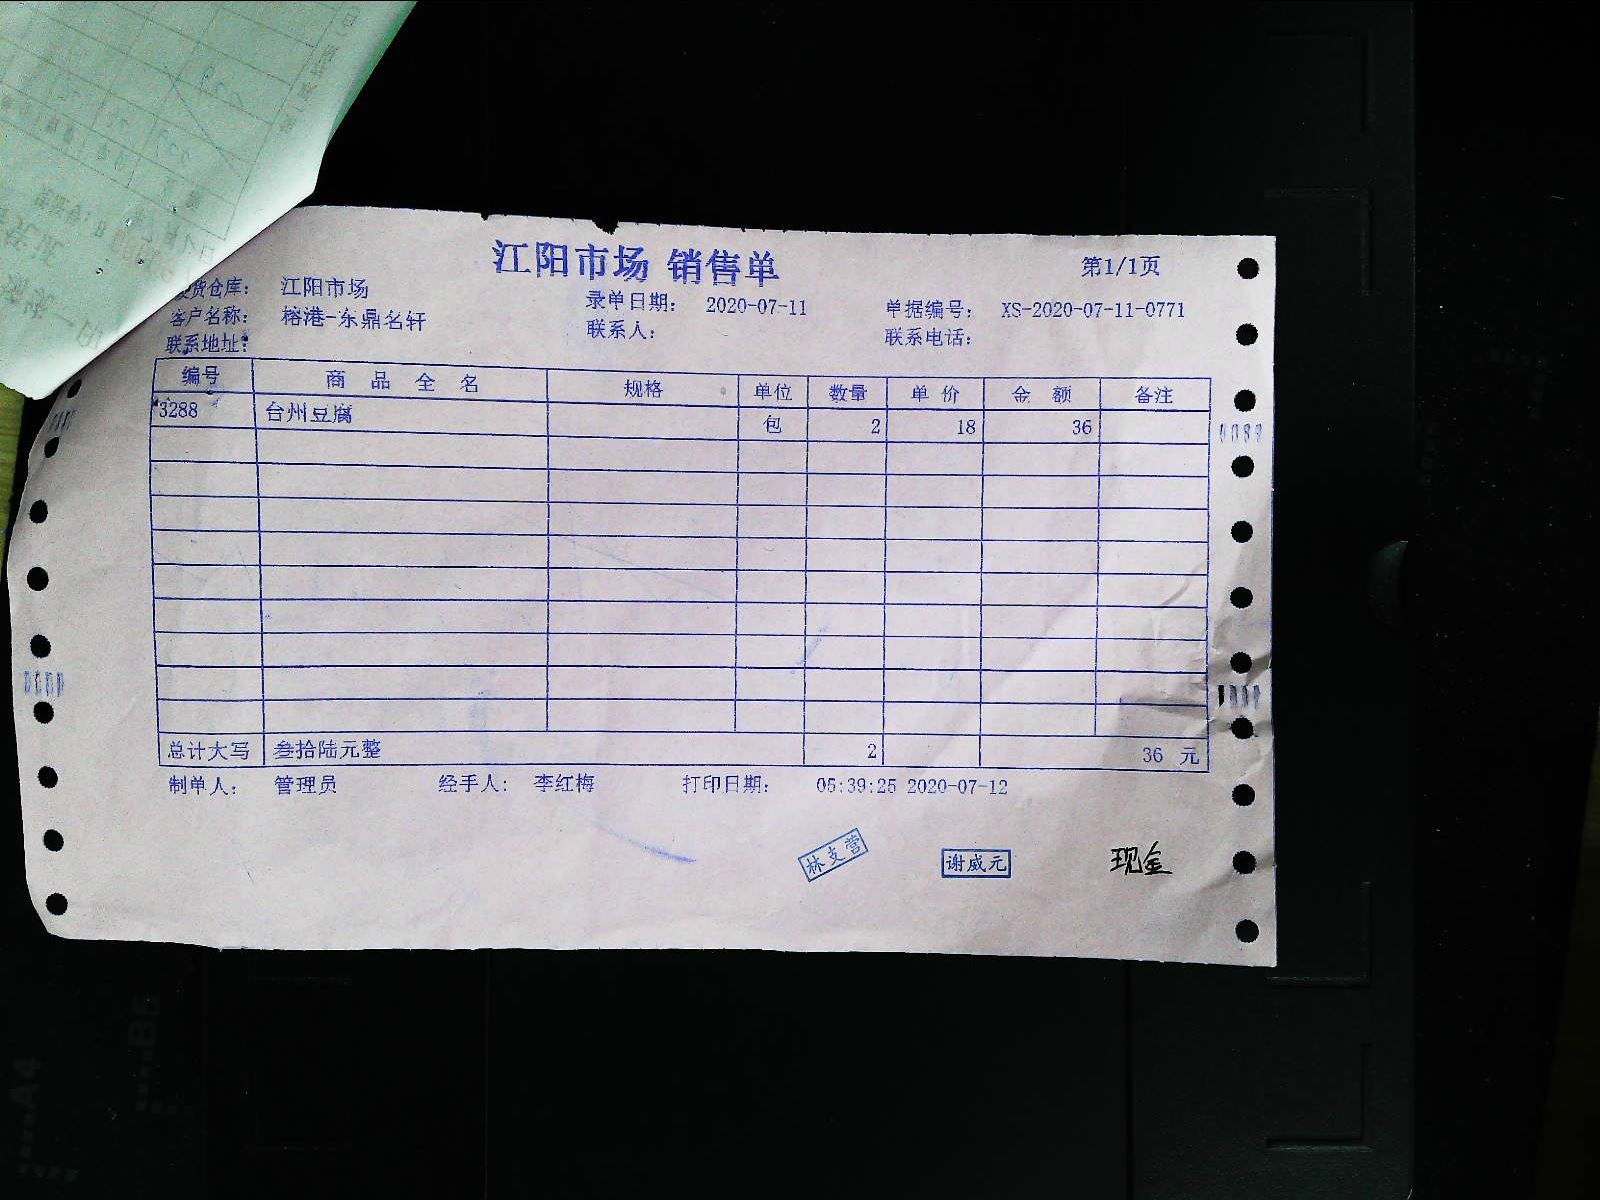 江阳市场 销售单
第1/1页
发货仓库: 江阳市场 录单日期: 2020-07-11 单据编号: XS-2020-07-11-0771
客户名称: 榕港-东鼎名轩 联系人: 联系电话:
联系地址:
编号 商 品 全 名 规格 单位 数量 单 价 金 额 备注
3288 台州豆腐 包 2 18 36
总计大写 叁拾陆元整 2 36 元
制单人: 管理员 经手人: 李红梅 打印日期: 05:39:25 2020-07-12
林支营 谢威元 现金
A4
B5